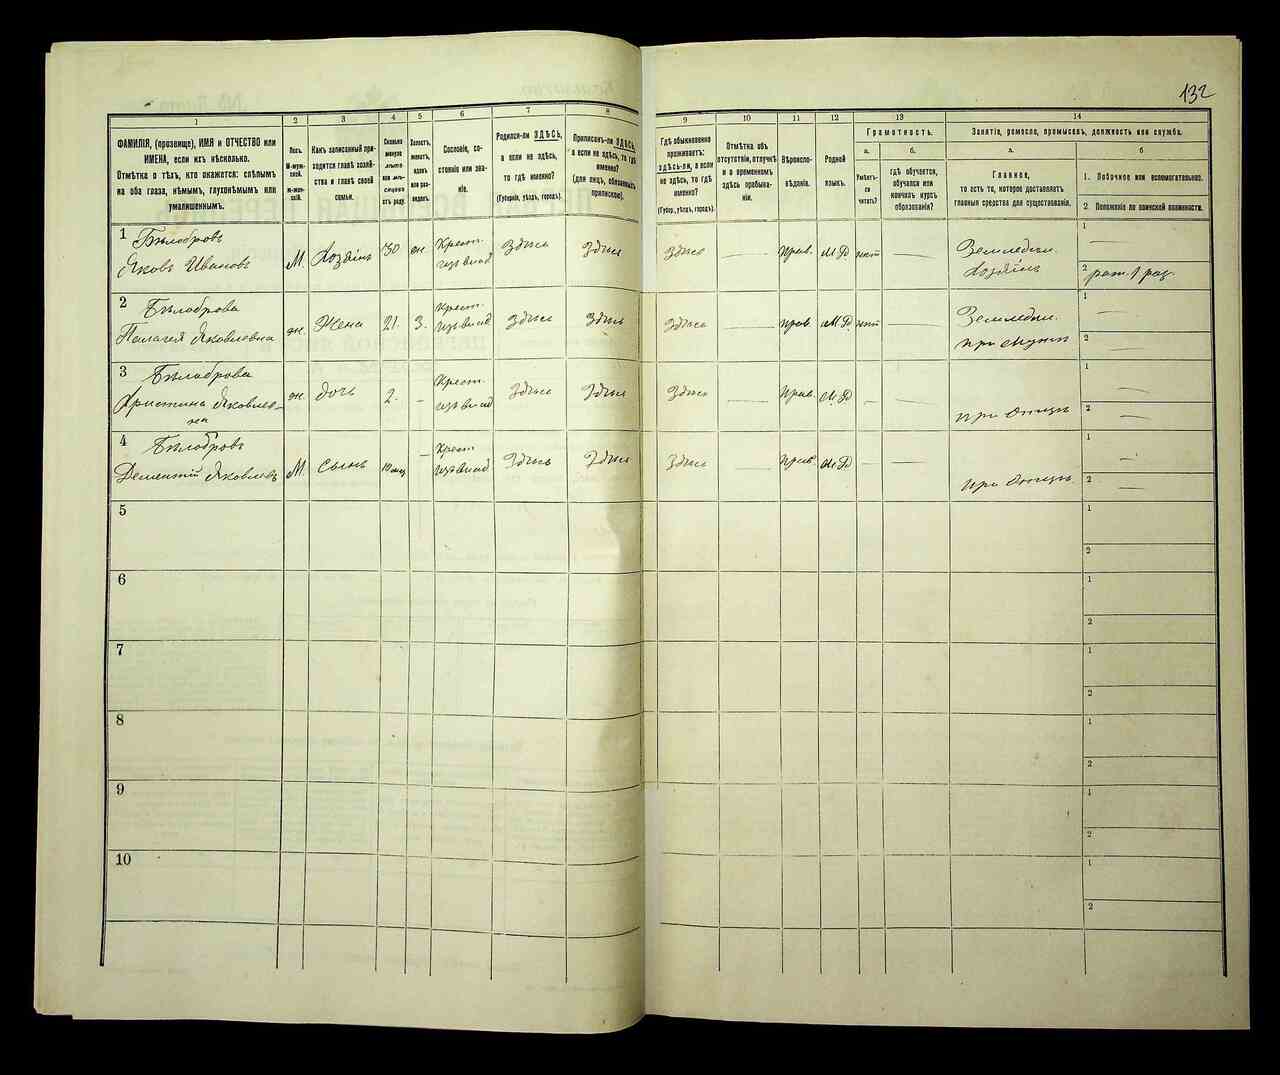 132
1
2
3
4
5
6
7
8
9
10
11
12
13
14
ФАМИЛІЯ, (прозвище), ИМЯ и ОТЧЕСТВО или
ИМЕНА, если ихъ нѣсколько.
Отмѣтка о тѣхъ, кто окажется: слѣпымъ
на оба глаза, нѣмымъ, глухонѣмымъ или
умалишеннымъ.
Полъ.
М-муж-
ской.
ж-жен-
скій.
Какъ записанный при-
ходится главѣ хозяй-
ства и главѣ своей
семьи.
Сколько
минуло
лѣтъ
или мѣ-
сяцевъ
отъ роду.
Холостъ,
женатъ,
вдовъ
или раз-
веденъ.
Сословіе, со-
стояніе или зва-
ніе.
Родился-ли ЗДѢСЬ,
а если не здѣсь,
то гдѣ именно?
(Губернія, уѣздъ, городъ).
Приписанъ-ли ЗДѢСЬ,
а если не здѣсь, то гдѣ
именно?
(для лицъ, обязанныхъ
припискою).
Гдѣ обыкновенно
проживаетъ:
здѣсь-ли, а если
не здѣсь, то гдѣ
именно?
(Губер., уѣздъ, городъ).
Отмѣтка объ
отсутствіи, отлучкѣ
и о временномъ
здѣсь пребыва-
ніи.
Вѣроиспо-
вѣданіе.
Родной
языкъ.
Грамотность.
а.
Умѣетъ-
ли
читать?
б.
гдѣ обучается,
обучался или
кончилъ курсъ
образованія?
Занятіе, ремесло, промыселъ, должность или служба.
а.
Главное,
то есть то, которое доставляетъ
главныя средства для существованія.
б
1. Побочное или вспомогательное.
2. Положеніе по воинской повинности.
1
Бѣлобровъ
Яковъ Ивановъ
М.
Хозяинъ
30
ж.
Крест.
изъ влад
Здѣсь
Здѣсь
Здѣсь
—
Прав.
М.Р
нѣт
—
Земледѣл.
Хозяинъ
1
—
2
рат. 1 раз.
2
Бѣлоброва
Палагея Яковлевна
ж.
Жена
21.
З.
Крест.
изъ влад
Здѣсь
Здѣсь
Здѣсь
—
Прав.
М.Р
нѣт
—
Земледѣл.
при мужѣ
1
—
2
—
3
Бѣлоброва
Христина Яковлев-
на
ж.
дочь
2.
—
Крест.
изъ влад
Здѣсь
Здѣсь
Здѣсь
—
Прав.
М.Р
—
—
при Отцѣ
1
—
2
—
4
Бѣлобровъ
Дементій Яковлевъ
М.
Сынъ
10 мц
—
Крест.
изъ влад
Здѣсь
Здѣсь
Здѣсь
—
Прав.
М.Р
—
—
при Отцѣ
1
—
2
—
5
1
2
6
1
2
7
1
2
8
1
2
9
1
2
10
1
2